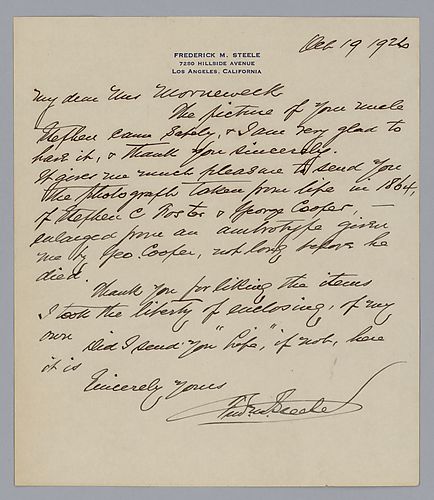 FREDERICK M. STEELE
7280 HILLSIDE AVENUE
LOS ANGELES, CALIFORNIA
Oct 19 1920
My dear Mrs Morneweck
The picture of your uncle
Stephen came safely, & I am very glad to
have it, & thank you sincerely.
It gives me much pleasure to send you
the photograph taken from life in 1864,
of Stephen C Foster & George Cooper, —
enlarged from an ambrotype given
me by Geo. Cooper, not long before he
died.
Thank you for liking the items
I took the liberty of enclosing, of my
own Did I send you "Life," if not, here
it is
Sincerely yours
Fred. M. Steele